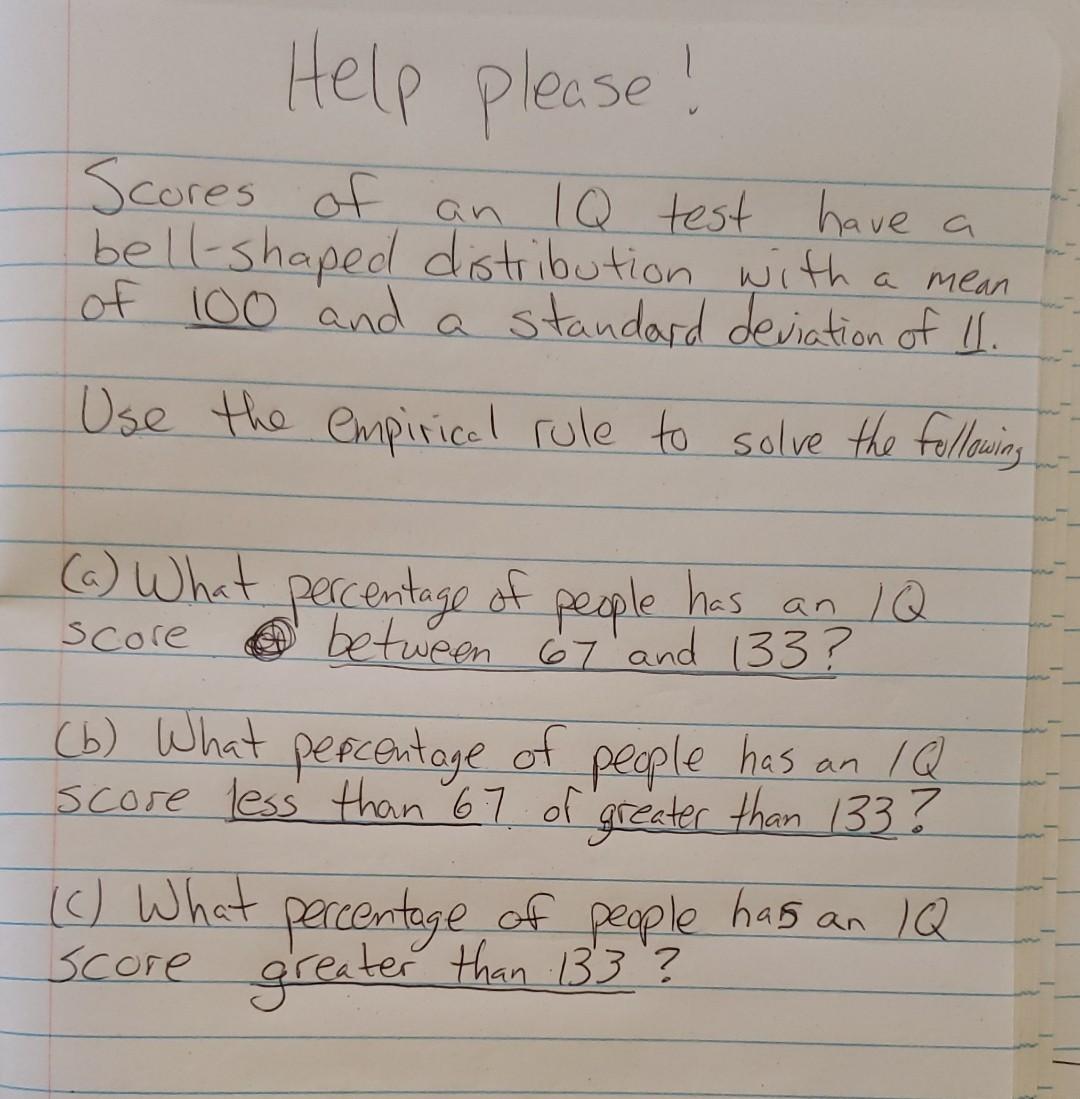 Help please!
Scores of an IQ test have a
bell-shaped distribution with a mean
of 100 and a standard deviation of 11.
Use the empirical rule to solve the following
(a) What percentage of people has an IQ
score between 67 and 133?
(b) What percentage of people has an IQ
score less than 67 or greater than 133?
(c) What percentage of people has an IQ
score greater than 133?